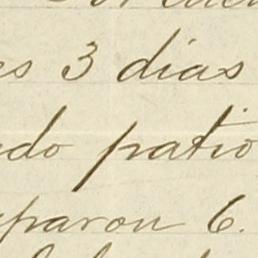 es 3 dias
ado patio
pararon 6.